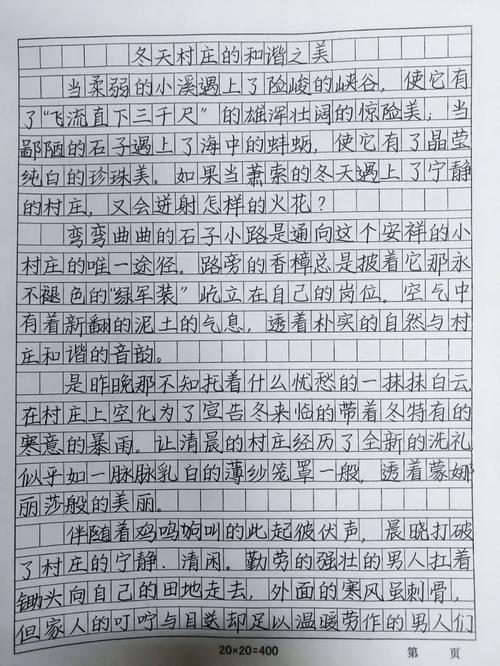 冬天村庄的和谐之美
当柔弱的小溪遇上了险峻的峡谷，使它有
了“飞流直下三千尺”的雄浑壮阔的惊险美；当
鄙陋的石子遇上了海中的蚌蛎，使它有了晶莹
纯白的珍珠美。如果当萧索的冬天遇上了宁静
的村庄，又会迸射怎样的火花？
弯弯曲曲的石子小路是通向这个安祥的小
村庄的唯一途径。路旁的香樟总是披着它那永
不褪色的“绿军装”屹立在自己的岗位。空气中
有着新翻的泥土的气息，透着朴实的自然与村
庄和谐的音韵。
是昨晚那不知托着什么忧愁的一抹抹白云
在村庄上空化为了宣告冬来临的带着冬特有的
寒意的暴雨。让清晨的村庄经历了全新的洗礼
似乎如一脉脉乳白的薄纱笼罩一般，透着蒙娜
丽莎般的美丽。
伴随着鸡鸣狗叫的此起彼伏声，晨晓打破
了村庄的宁静、清闲。勤劳的强壮的男人扛着
锄头向自己的田地走去，外面的寒风虽刺骨，
但家人的叮咛与目送却足以温暖劳作的男人们
20×20=400 第 页